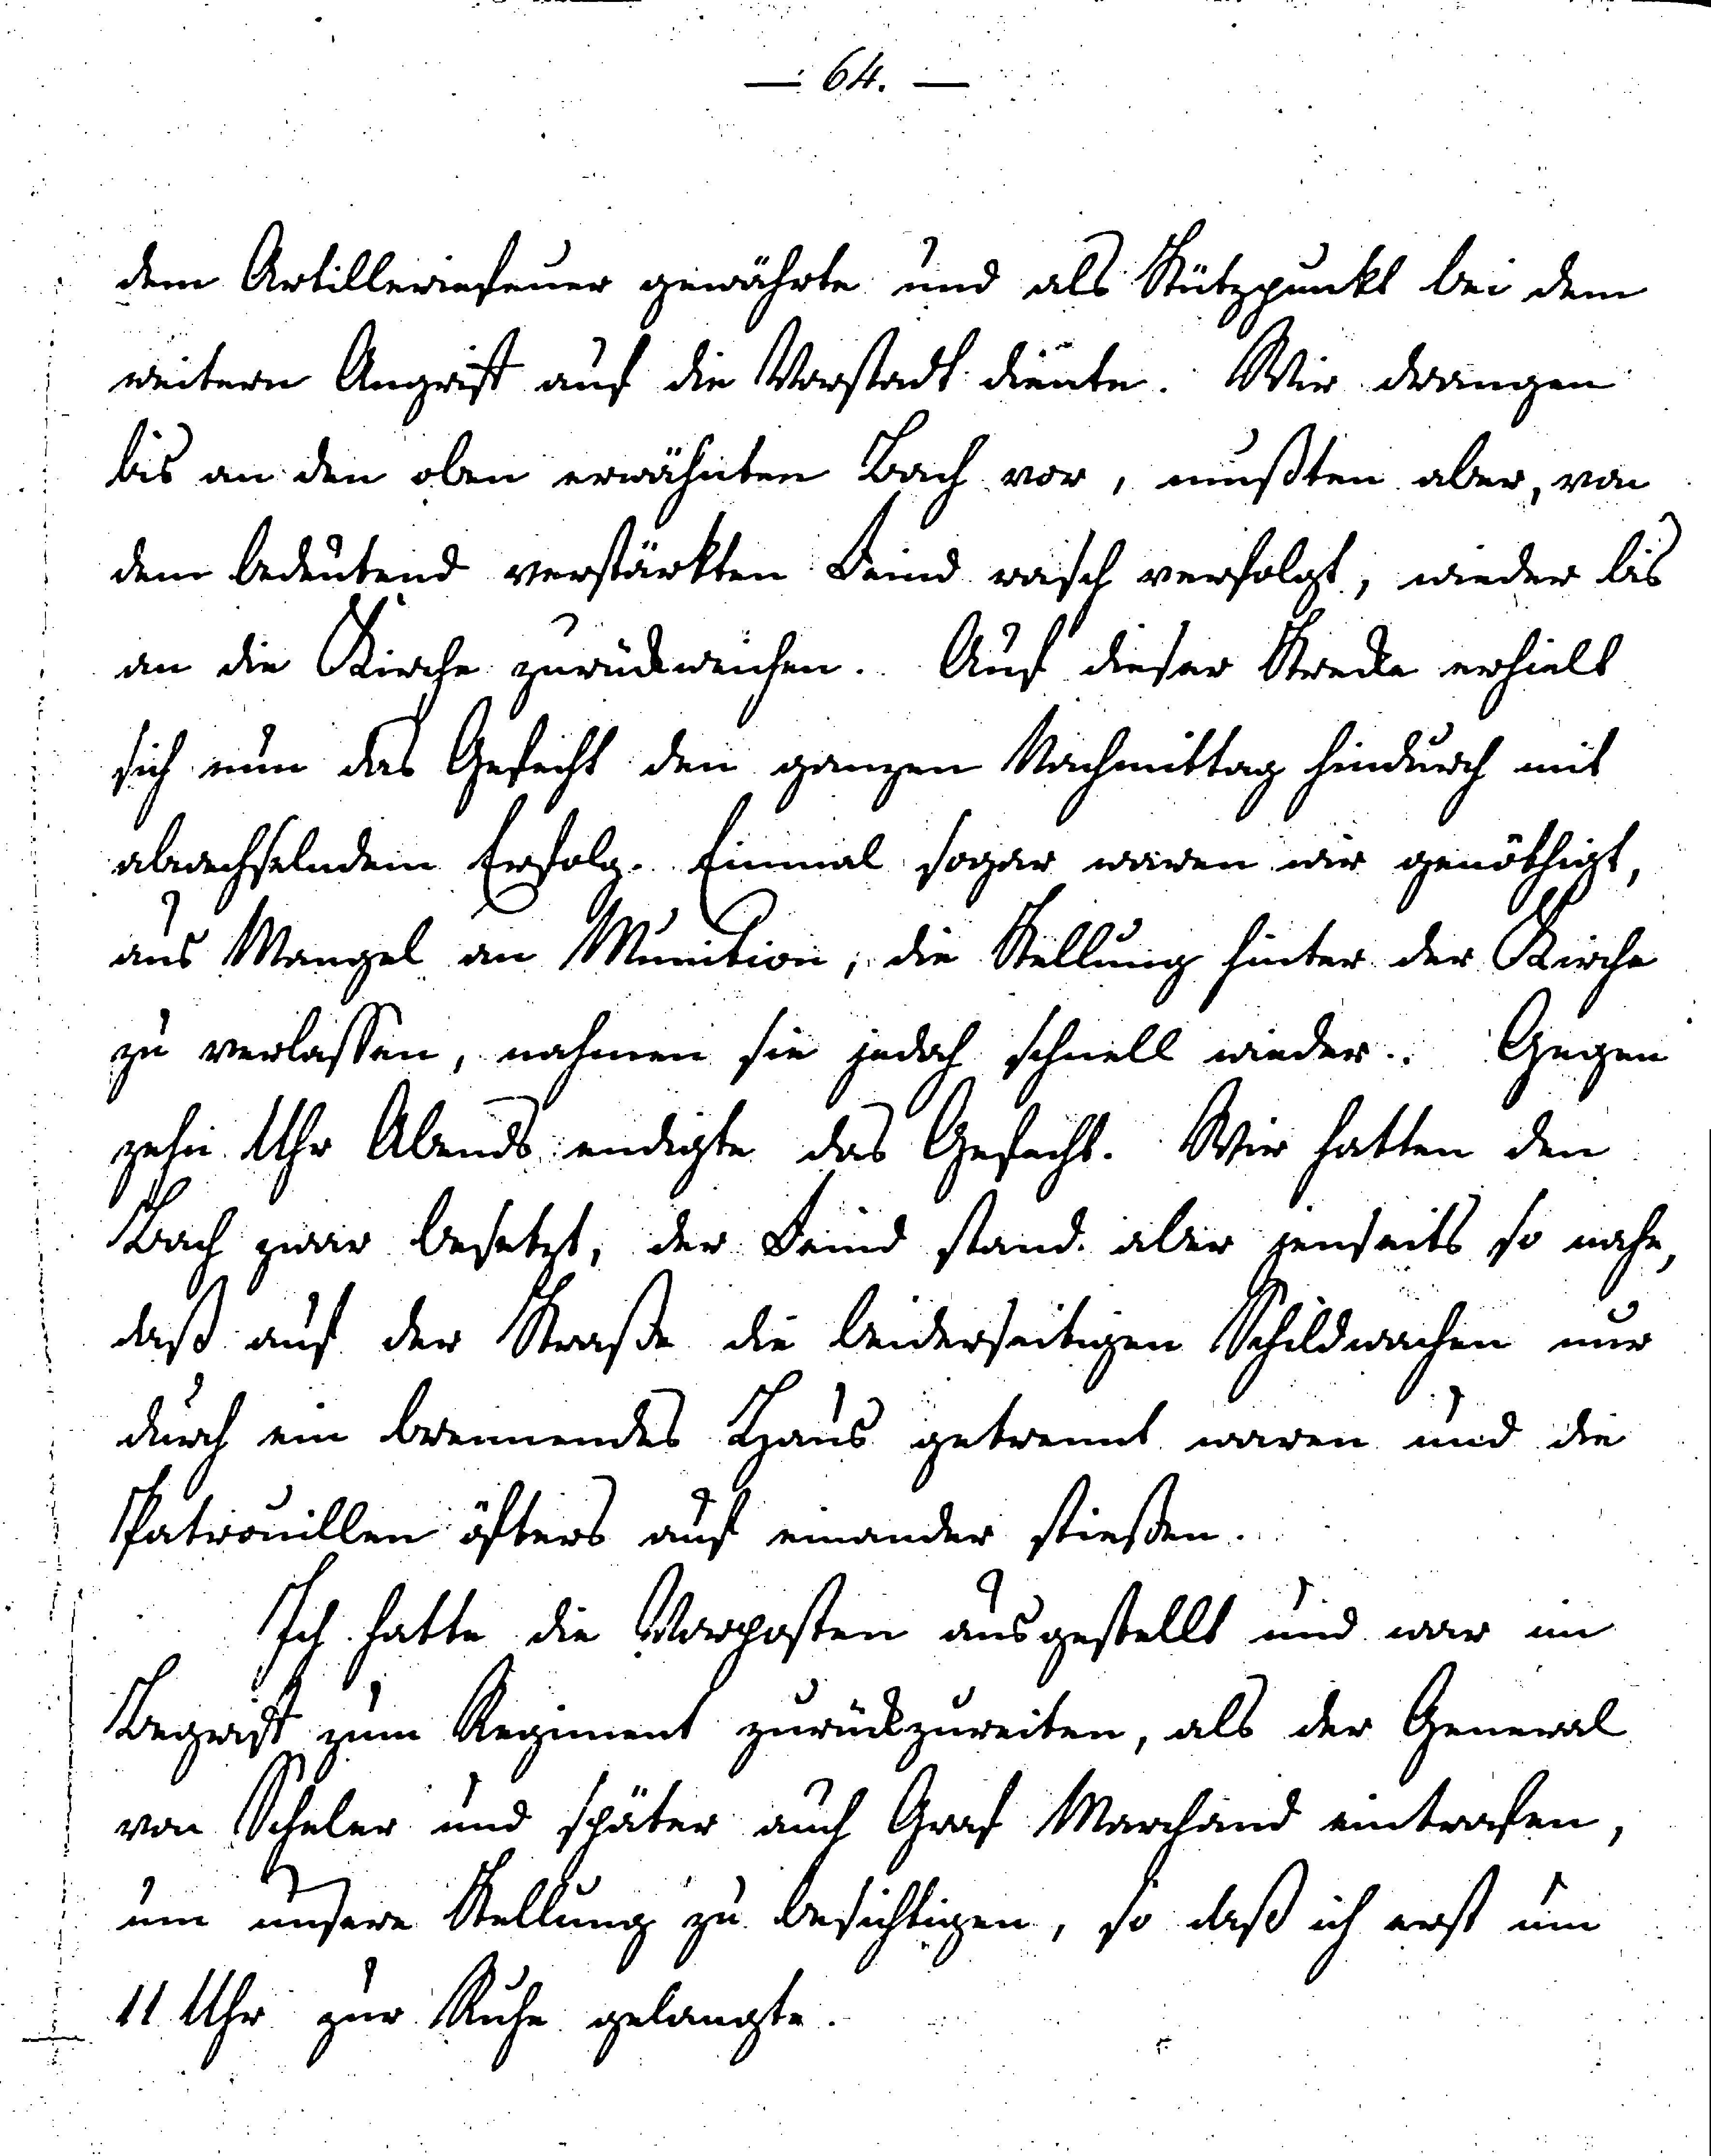 — 64. —
dem Artilleriefeuer gewährte und als Stützpunkt bei dem
weitern Angriff auf die Vorstadt diente. Wir drangen
bis an den oben erwähnten Bach vor, mußten aber, von
dem bedeutend verstärkten Feind rasch verfolgt, wieder bis
an die Kirche zurückweichen. Auf dieser Strecke erhielt
sich nun das Gefecht den ganzen Nachmittag hindurch mit
abwechselndem Erfolg. Einmal sogar waren wir genöthigt,
aus Mangel an Munition, die Stellung hinter der Kirche
zu verlassen, nahmen sie jedoch schnell wieder. Gegen
zehn Uhr Abends endigte das Gefecht. Wir hatten den
Bach zwar besetzt, der Feind stand aber jenseits so nahe,
daß auf der Straße die beiderseitigen Schildwachen nur
durch ein brennendes Haus getrennt waren und die
Patrouillen öfters auf einander stießen.
Ich hatte die Vorposten ausgestellt und war im
Begriff zum Regiment zurückzureiten, als der General
von Scheler und später auch Graf Marchand eintrafen,
um unsere Stellung zu besichtigen, so daß ich erst um
11 Uhr zur Ruhe gelangte.